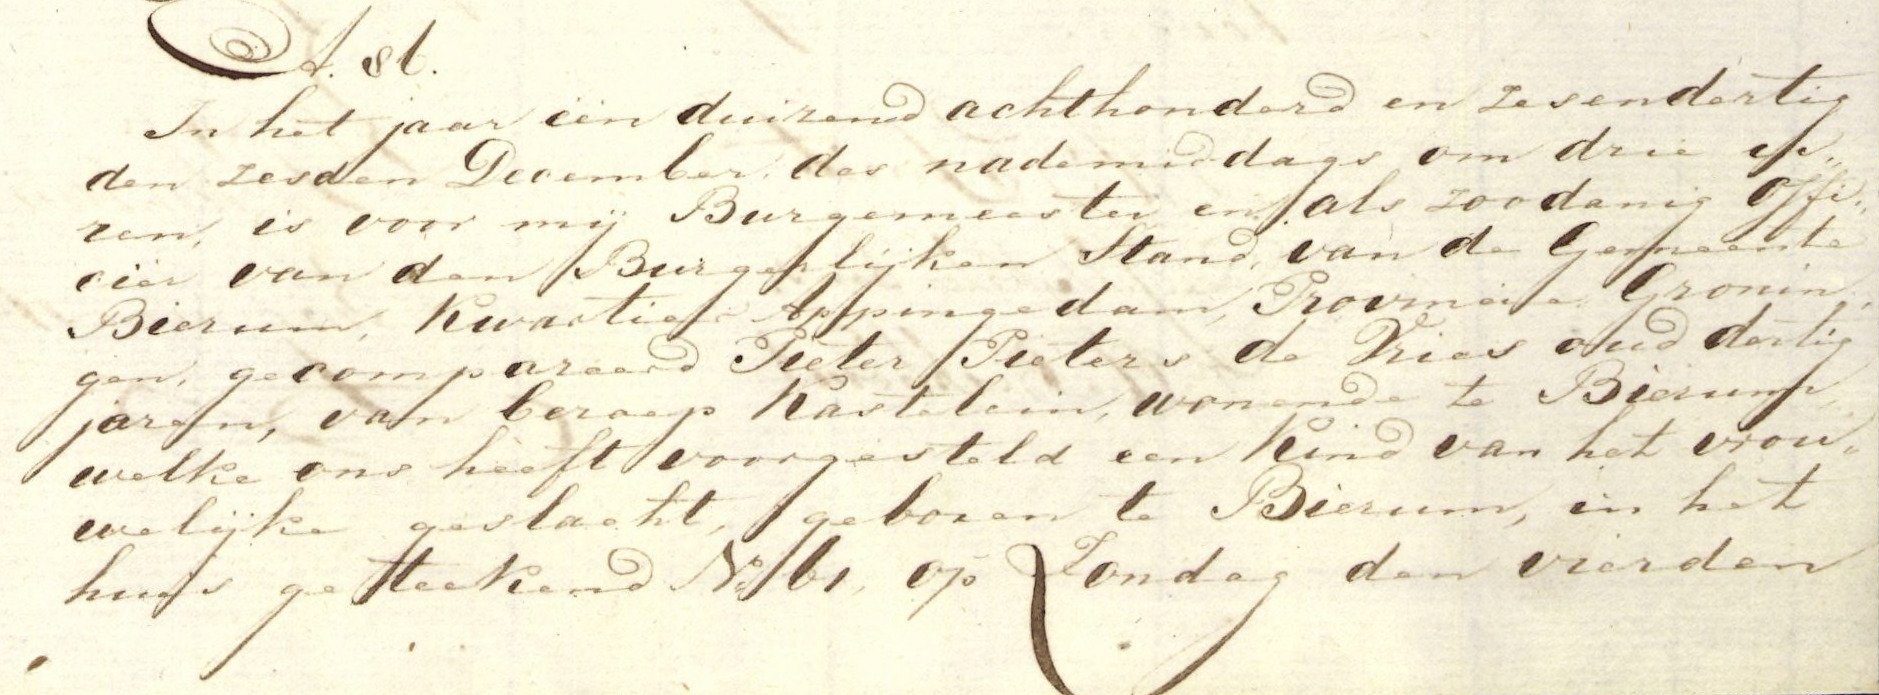 A. st.
In het jaar één duizend achthonderd en zesendertig
den zesden December, des nademiddags om drie u„
ren, is voor mij Burgemeester en als zoodanig Offi„
cier van den Burgerlijken Stand, van de Gemeente
Bierum, Kwartier Appingedam, Provincie Gronin„
gen, gecompareerd Pieter Pieters de Vries oud dertig
jaren, van beroep Kastelein, wonende te Bierum,
welke ons heeft voorgesteld een Kind van het vrou„
welijke geslacht, geboren te Bierum, in het
huis geteekend No 61, op Zondag den vierden